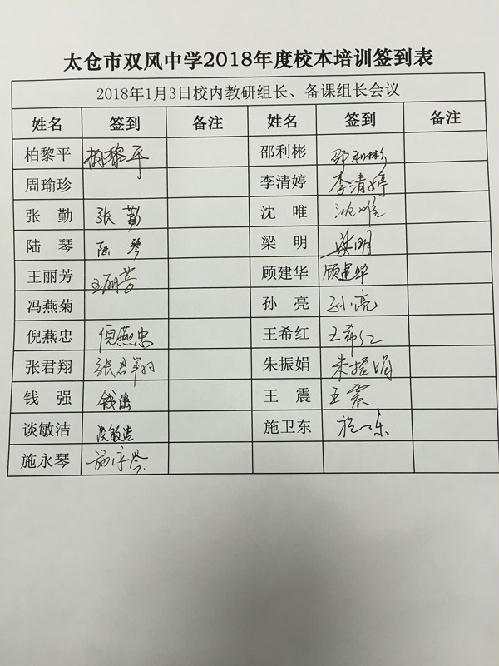 太仓市双凤中学2018年度校本培训签到表
2018年1月3日校内教研组长、备课组长会议
姓名 签到 备注 姓名 签到 备注
柏黎平 柏黎平 邵利彬 邵利彬
周瑜珍 李清婷 李清婷
张勤 张勤 沈唯 沈唯
陆琴 陆琴 梁明 梁明
王丽芳 王丽芳 顾建华 顾建华
冯燕菊 孙亮 孙亮
倪燕忠 倪燕忠 王希红 王希红
张君翔 张君翔 朱振娟 朱振娟
钱强 钱强 王震 王震
谈敏洁 谈敏洁 施卫东 施卫东
施永琴 施永琴